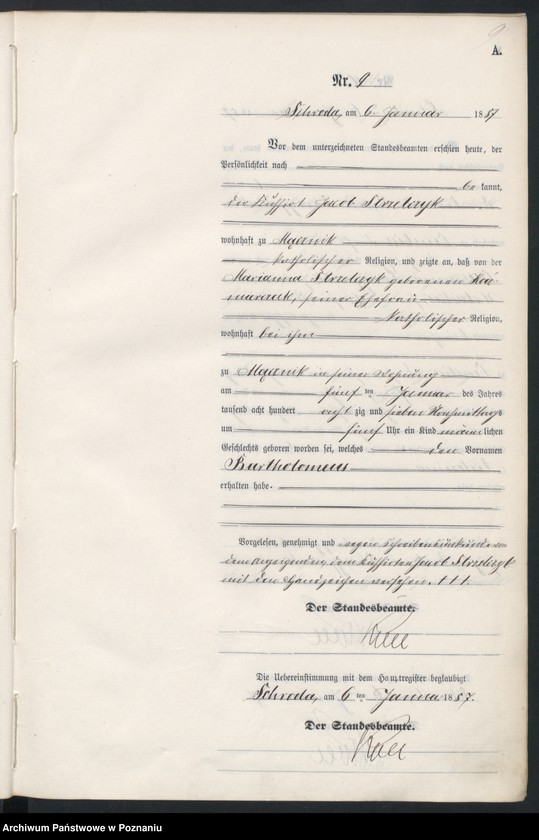 9
A.
Nr. 9
Schroda, am 6. Januar 1887
Vor dem unterzeichneten Standesbeamten erschien heute, der
Persönlichkeit nach
be kannt,
der Jacob Strzelczyk
wohnhaft zu Mącznik
katholischer Religion, und zeigte an, daß von der
Marianna Strzelczyk geborenen
seiner Ehefrau
katholischer Religion,
wohnhaft bei ihm
zu Mącznik in seiner Wohnung
am fünf ten Januar des Jahres
tausend acht hundert acht zig und sieben Nachmittags
um fünf Uhr ein Kind männ lichen
Geschlechts geboren worden sei, welches den Vornamen
Bartholomeus
erhalten habe.
Vorgelesen, genehmigt und wegen Schreibensunkunde von
dem Anzeigenden, dem Jacob Strzelczyk
mit den Handzeichen versehen. † † †.
Der Standesbeamte.
Die Uebereinstimmung mit dem Hauptregister beglaubigt
Schroda, am 6 ten Januar 1887.
Der Standesbeamte.
Archiwum Państwowe w Poznaniu